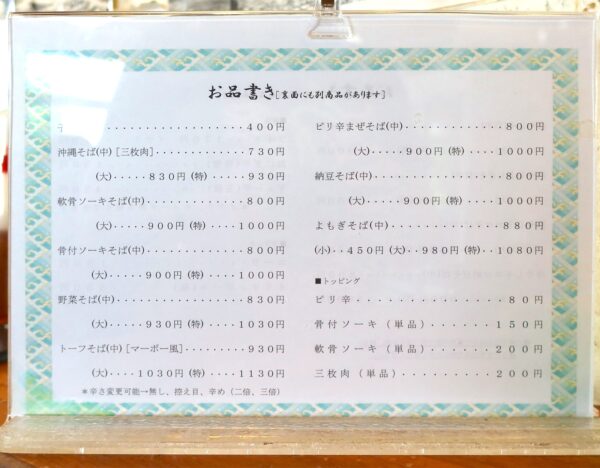 お品書き[裏面にも別商品があります]
‥‥‥‥‥‥‥400円
沖縄そば(中)[三枚肉]‥‥‥‥730円
(大)‥‥830円 (特)‥‥930円
軟骨ソーキそば(中)‥‥‥‥800円
(大)‥‥900円 (特)‥‥1000円
骨付ソーキそば(中)‥‥‥‥800円
(大)‥‥900円 (特)‥‥1000円
野菜そば(中)‥‥‥‥‥‥830円
(大)‥‥930円 (特)‥‥1030円
トーフそば(中)[マーボー風]‥‥‥‥930円
(大)‥‥1030円 (特)‥‥1130円
*辛さ変更可能→無し、控え目、辛め(二倍、三倍)
ピリ辛まぜそば(中)‥‥‥‥800円
(大)‥‥900円 (特)‥‥1000円
納豆そば(中)‥‥‥‥‥‥800円
(大)‥‥900円 (特)‥‥1000円
よもぎそば(中)‥‥‥‥‥880円
(小)‥450円 (大)‥980円 (特)‥1080円
■トッピング
ピリ辛‥‥‥‥‥‥‥80円
骨付ソーキ(単品)‥‥‥‥150円
軟骨ソーキ(単品)‥‥‥‥200円
三枚肉(単品)‥‥‥‥‥200円